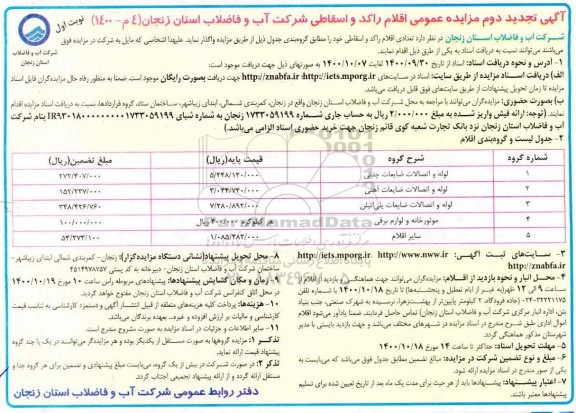 آگهی تجدید دوم مزایده عمومی اقلام راکد و اسقاطی شرکت آب و فاضلاب استان زنجان (٤ م - ۱۴۰۰)
نوبت اول
شرکت آب و فاضلاب استان زنجان
شرکت آب و فاضلاب استان زنجان در نظر دارد تعدادی اقلام راکد و اسقاطی خود را مطابق گروه‌بندی جدول ذیل از طریق مزایده واگذار نماید. علیهذا اشخاصی که مایل به شرکت در مزایده فوق
می‌باشند می‌توانند نسبت به دریافت اسناد به یکی از طرق ذیل اقدام نمایند.
۱- آدرس و نحوه دریافت اسناد: اسناد از تاریخ ۱۴۰۰/۰۹/۳۰ لغایت ۱۴۰۰/۱۰/۰۷ به صورتهای ذیل جهت دریافت موجود است.
الف) دریافت اسناد مزایده از طریق سایت: اسناد در سایت‌های http://iets.mporg.ir و http://znabfa.ir جهت دریافت بصورت رایگان موجود است. ضمنا به منظور رفاه حال مزایده‌گران فایل اسناد
مزایده تا زمان تحویل پیشنهادات از طریق سایت‌های فوق قابل دریافت می‌باشد.
ب) بصورت حضوری: مزایده‌گران می‌توانند با مراجعه به محل شرکت آب و فاضلاب استان زنجان واقع در زنجان، کمربندی شمالی، ابتدای زیباشهر، ساختمان ستاد، گروه قراردادها، نسبت به دریافت اسناد مزایده اقدام
نمایند. (توجه: ارائه فیش واریز شده به مبلغ ۲/۰۰۰/۰۰۰ ریال به حساب جاری شماره ۱۷۳۳۰۵۹۱۹۹ به شماره شبای IR93018000000000173305۹۱۹۹ بنام شرکت
آب و فاضلاب استان زنجان نزد بانک تجارت شعبه کوی قائم زنجان جهت خرید حضوری اسناد الزامی می‌باشد.)
۲- جدول لیست و گروه‌بندی اقلام
شماره گروه شرح گروه قیمت پایه(ریال) مبلغ تضمین(ریال)
۱ لوله و اتصالات ضایعات چدنی ۵/۴۴۸/۱۴۰/۰۰۰ ۲۷۲/۴۰۷/۰۰۰
۲ لوله و اتصالات ضایعات آهنی ۳/۰۴۴/۷۴۰/۰۰۰ ۱۵۲/۲۳۷/۰۰۰
۳ لوله و اتصالات ضایعات پلی‌اتیلن
۴ موتورخانه و لوازم برقی ۱۰۰/۰۰۰/۰۰۰
۵ سایر اقلام ۱/۰۸۵/۴۸۲/۰۰۰ ۵۴/۲۷۴/۱۰۰
۳- سایت‌های ثبت آگهی: http://iets.mporg.ir http://www.nww.ir
http://znabfa.ir
۴- محل انبار و نحوه بازدید از اقلام: مزایده‌گران می‌توانند جهت هماهنگی و بازدید از اقلام از
ساعت ۹ الی ۱۲ ظهر(به غیر از ایام تعطیل و پنجشنبه‌ها) تا تاریخ ۱۴۰۰/۱۰/۱۸ با شماره تلفن
بتن، اداره انبار مرکزی شرکت آب و فاضلاب استان زنجان) تماس حاصل فرمایند. ضمنا یادآور می‌شود اقلام
اموال اداری طبق شرح مندرج در اسناد مزایده در شهرهای مختلف می‌باشد و جهت بازدید بایستی با مدیر
شهرستان مذکور هماهنگی گردد.
۵- مهلت تحویل اسناد: حداکثر تا ساعت ۱۴ مورخ ۱۴۰۰/۱۰/۱۸
۶- مبلغ و نوع تضمین شرکت در مزایده: مبالغ تضمین مطابق جدول فوق می‌باشد که می‌بایست به
یکی از صور مندرج در اسناد مزایده ارائه شود.
۷- اعتبار پیشنهاد: پیشنهادها باید از هر حیث برای مدت یک ماه بعد از تاریخ تعیین شده برای تسلیم
پیشنهادها معتبر باشند.
۸- محل تحویل پیشنهاد(نشانی دستگاه مزایده‌گزار): زنجان- کمربندی شمالی ابتدای زیباشهر-
ساختمان شرکت آب و فاضلاب استان زنجان- دبیرخانه به کد پستی ۴۵۱۴۹۷۸۷۵۷
۹- زمان و مکان گشایش پیشنهادها: پیشنهادهای مربوطه راس ساعت ۱۰ مورخ ۱۴۰۰/۱۰/۱۹
در محل اتاق کنفرانس شرکت آب و فاضلاب استان زنجان مفتوح خواهد گردید.
۱۰- هزینه‌ها: پرداخت کلیه هزینه‌های متعلقه از قبیل انتشار آگهی و دستمزد کارشناسی به تناسب قیمت
کارشناسی و مالیات بر ارزش افزوده و غیره، بعهده برندگان می‌باشد.
۱۱- سایر اطلاعات و جزئیات در اسناد مزایده به صورت مشروح مندرج است.
تذکر ۱: مزایده گروهها به صورت مستقل از یکدیگر بوده و هر مزایده‌گر می‌تواند در یک یا چند گروه
پیشنهاد قیمت ارائه نماید.
تذکر ۲: در صورت شرکت در بیش از یک گروه، می‌بایست مبلغ پیشنهادی و تضمین برای هر گروه جدا و
مستقل ارائه گردد و از ارائه پیشنهاد تجمیعی اجتناب گردد.
دفتر روابط عمومی شرکت آب و فاضلاب استان زنجان